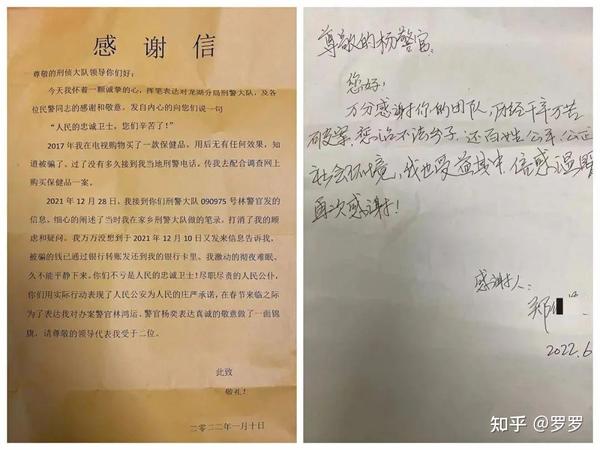 感谢信
尊敬的刑侦大队领导你们好：
今天我怀着一颗诚挚的心，挥笔表达对龙湖分局刑警大队，及各
位民警同志的感谢和敬意。发自内心的向你们说一句
“人民的忠诚卫士，您们辛苦了！”
2017年我在电视购物买了一款保健品，用后无有任何效果，知
道被骗了。过了没有多久接到我当地刑警电话，传我去配合调查网上
购买保健品一案。
2021年12月28日，我接到你们刑警大队090975号林警官发的
信息，细心的阐述了当时我在家乡刑警大队做的笔录，打消了我的顾
虑和疑问。我万万没想到于2021年12月10日又发来信息告诉我，
被骗的钱已通过银行转账发还到我的银行卡里。我激动的彻夜难眠、
久不能平静下来。你们不亏是人民的忠诚卫士！尽职尽责的人民公仆，
你们用实际行动表现了人民公安为人民的庄严承诺，在春节来临之际
为了表达我对办案警官林鸿运、警官杨奕表达真诚的敬意做了一面锦
旗，请尊敬的领导代表我受于二位。
此致
敬礼！
二零二二年一月十日
尊敬的杨警官，
您好，
万分感谢你的团队，历经千辛万苦
破案，惩治不法分子，还百姓公平、公正
社会环境，我也受益其中，倍感温暖
再次感谢！
感谢人：
郑
2022.6
知乎 @罗罗